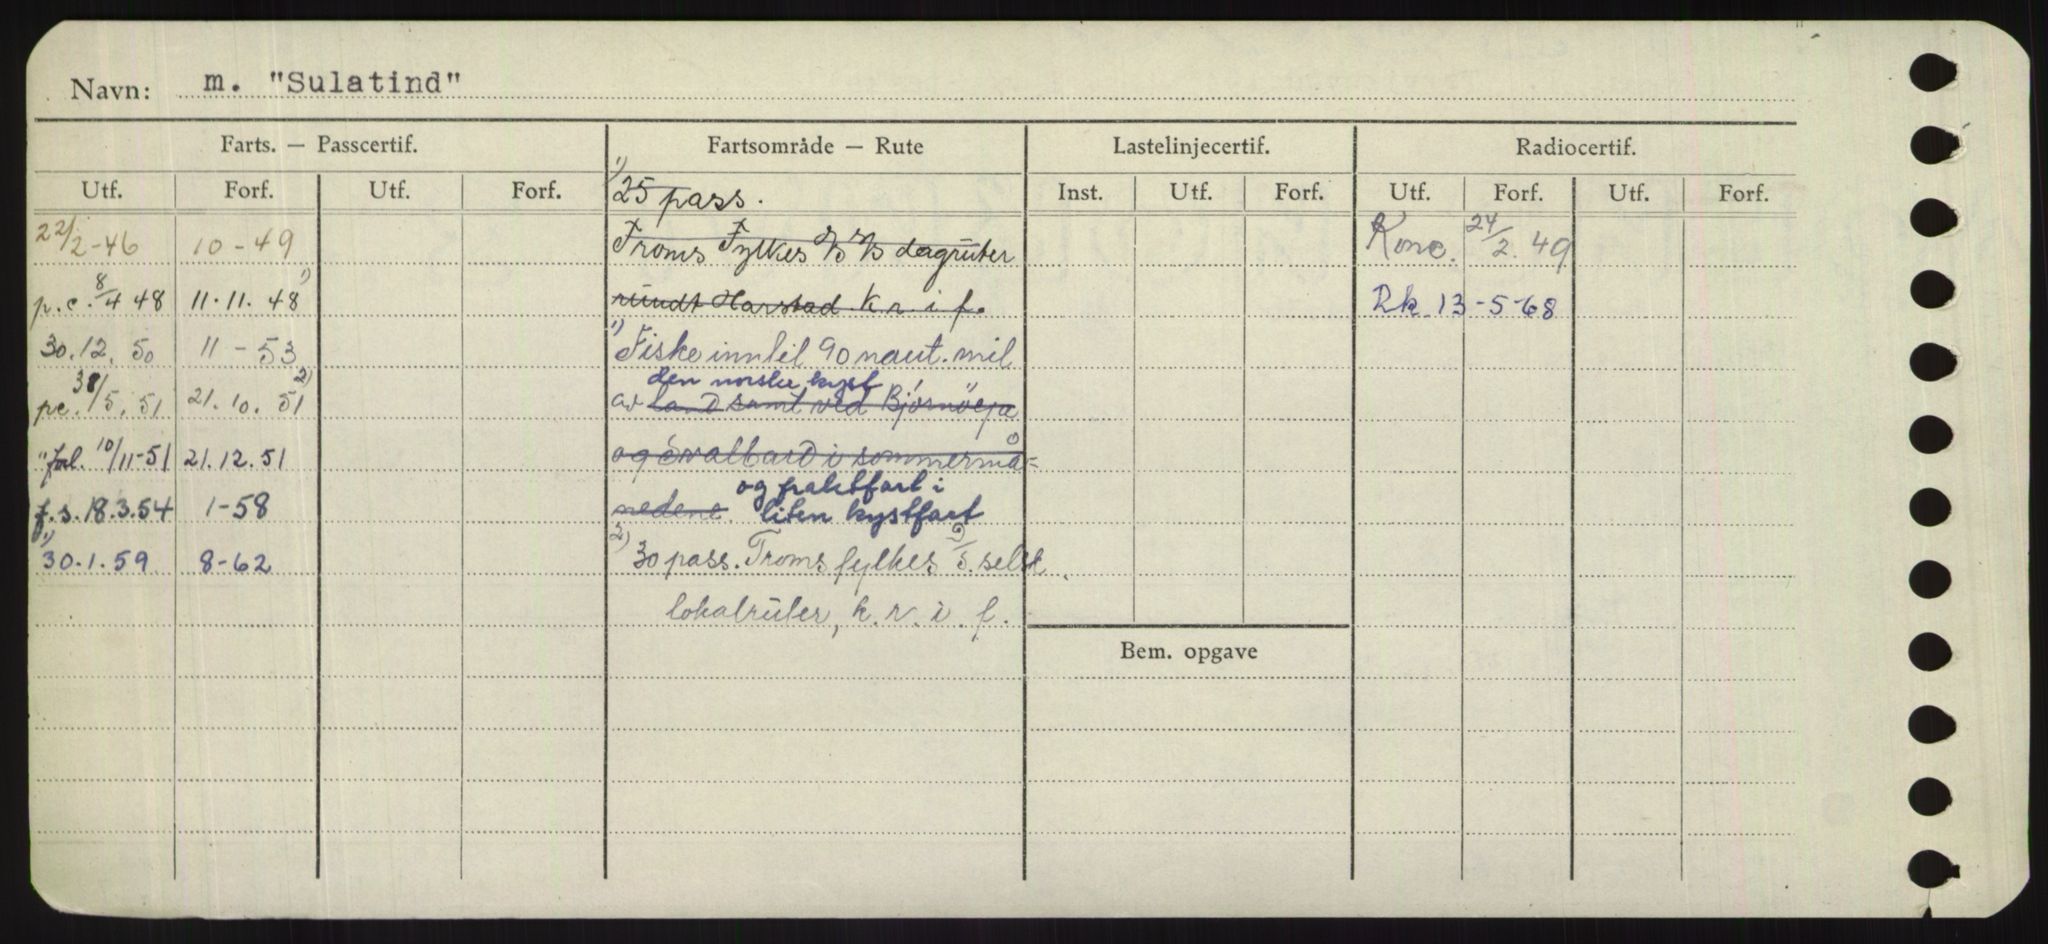 Navn: m. "Sulatind"
Farts. — Passcertif. Fartsområde — Rute Lastelinjecertif. Radiocertif.
Utf. Forf. Utf. Forf. 1) 25 pass. Inst. Utf. Forf. Utf. Forf. Utf. Forf.
22/2-46 10-49 Troms Fylkes D/S R/S dagruter Konc. 24/2.49
p.c. 8/4 48 11.11.48 1) rundt Harstad k.r.i.f. Rk. 13-5-68
30.12.50 11-53 1) Fiske inntil 90 naut. mil
den norske kyst
pc. 31/5.51 21.10.51 2) av land samt ved Bjørnøya
"forl. 10/11-51 21.12.51 og Svalbard i sommermå=
og fraktfart i
f.s. 18.3.54 1-58 nedene. liten kystfart
1) 30.1.59 8-62 2) 30 pass. Troms fylkes D/S. selsk.
lokalruter, k.r.i.f.
Bem. opgave